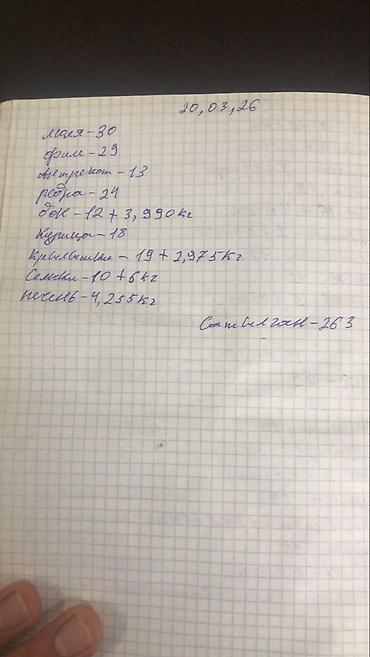 20,03,26
маля-30
филе-29
Антрекот-13
ребра-24
бок-12+3,990кг
Курица-18
Крылышки-19+2,975кг
Семечки-10+6кг
печень-4,255кг
Сатылган-263